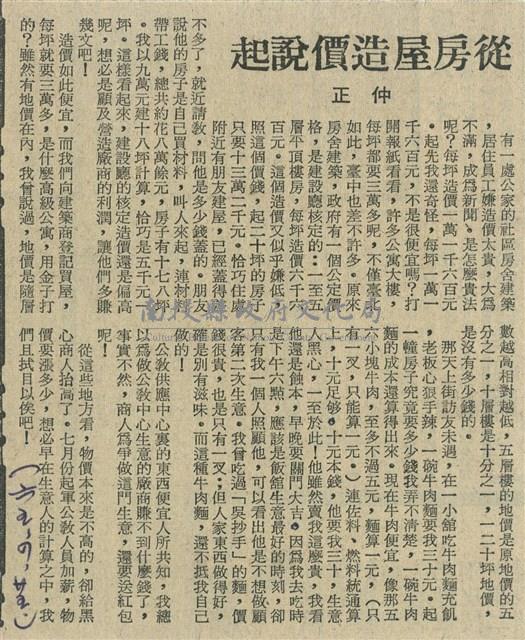 從房屋造價說起
仲正
有一處公家的社區房舍建築
，居住員工嫌造價太貴，大為
不滿，成為新聞。是怎麼貴法
呢？每坪造價一萬一千六百元
。起先我還奇怪，每坪一萬一
千六百元，不是很便宜嗎？打
開報紙看看，許多公寓大樓，
每坪都要三萬多呢，不僅臺北
如此，臺中也差不許多。原來
房舍建築，政府有一個公定價
格，是建設廳核定的：一至五
層平頂樓房，每坪造價六千六
百元。這個造價又似乎嫌低，
照這個價錢，起二十坪的房子
只要十三萬二千元。恰巧住處
附近有朋友建屋，已經蓋得差
不多了，就近請教，問他是多少錢蓋的。朋友
說他的房子是自己買材料，叫人來起，連材料
帶工錢，總共約花八萬餘元，房子有十七八坪
。我以九萬元建十八坪計算，恰巧是五千元一
坪。這樣看起來，建設廳的核定造價還是偏高
呢，想必是顧及營造廠商的利潤，讓他們多賺
幾文吧！
造價如此便宜，而我們向建築商登記買屋，
每坪就要三萬多，是什麼高級公寓，用金子打
的？雖然有地價在內，我曾說過，地價是隨層
數越高相對越低，五層樓的地價是原地價的五
分之一，十層樓是十分之一，一二十坪地價，
是沒有多少錢的。
那天上街訪友未遇，在一小舘吃牛肉麵充飢
，老板心狠手辣，一碗牛肉麵要我三十元。起
一幢房子究竟要多少錢我弄不清楚，一碗牛肉
麵的成本還算得出來。現在牛肉便宜，像那五
六小塊牛肉，至多不過五元，麵算一元，（只
有一叉，只能算一元。）連佐料、燃料統通算
上，十元足够。十元本錢，他要我三十，生意
人黑心，一至於此！他雖然賣我這麼貴，我看
他還是蝕本，早晚要關門大吉。因為我去吃時
是下午六點，應該是飯舘生意最好的時刻，卻
只有我一個人照顧他，可以看出他是不想做顧
客第二次生意。我曾吃過「吳抄手」的麵，價
錢很貴，也是只有一叉；但人家東西做得好，
確是別有滋味。而這種牛肉麵，還不抵我自己
做的！
公教供應中心裏的東西便宜人所共知，我總
以為做公教中心生意的廠商賺不到什麼錢了，
事實不然，商人為爭做這門生意，還要送紅包
呢！
從這些地方看，物價本來是不高的，卻給黑
心商人抬高了。七月份起軍公教人員加薪，物
價要漲多少，想必早在生意人的計算之中，我
們且拭目以俟吧！
南投縣政府文化局